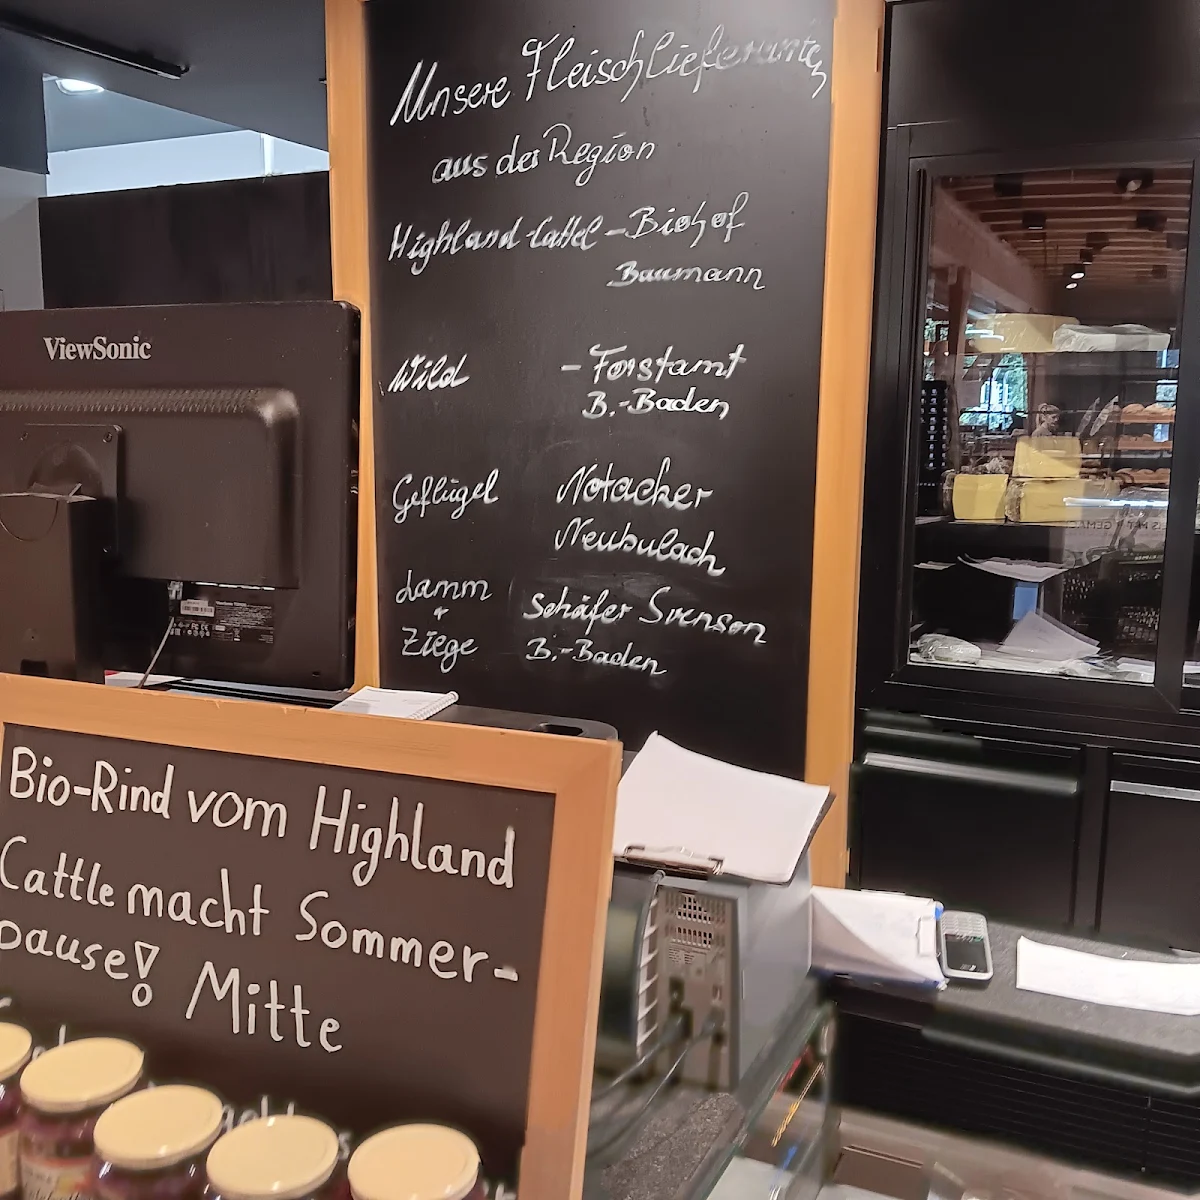 Unsere Fleischlieferanten
aus der Region
Highland-Cattel-Biohof
Baumann
Wild - Forstamt
B.-Baden
Geflügel Notacker
Neubulach
Lamm
+
Ziege
Schäfer Svenson
B.-Baden
ViewSonic
Bio-Rind vom Highland
Cattle macht Sommer-
pause! Mitte